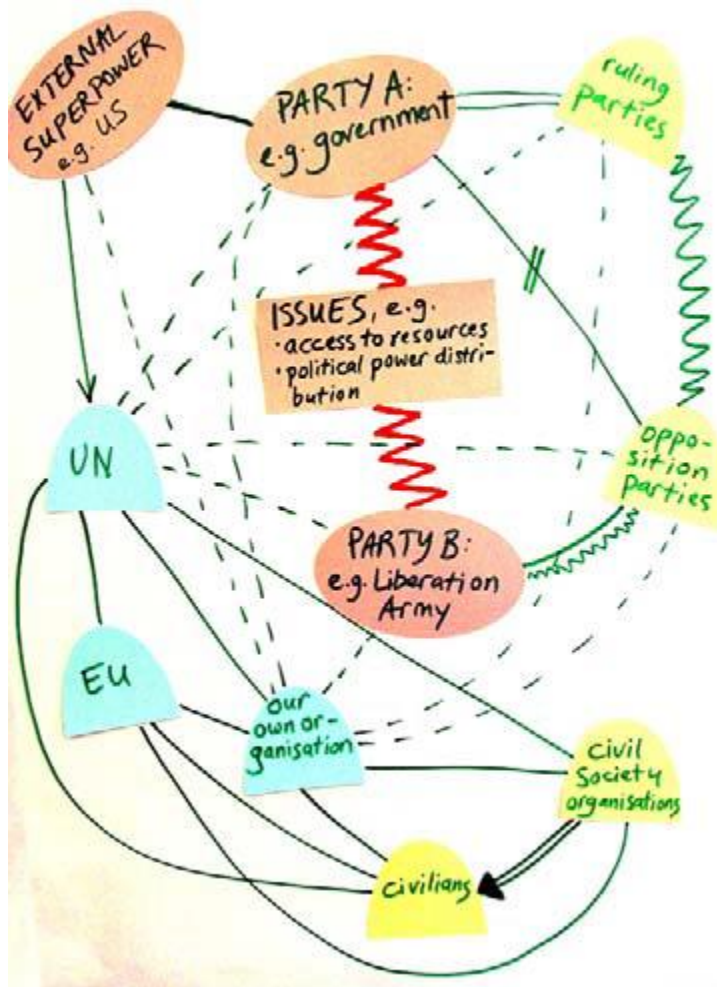 EXTERNAL
SUPERPOWER
e.g. US
PARTY A:
e.g. government
ruling
parties
ISSUES, e.g.
· access to resources
· political power distri-
bution
UN
oppo-
sition
parties
PARTY B:
e.g. Liberation
Army
EU
our
own or-
ganisation
civil
Society
organisations
civilians